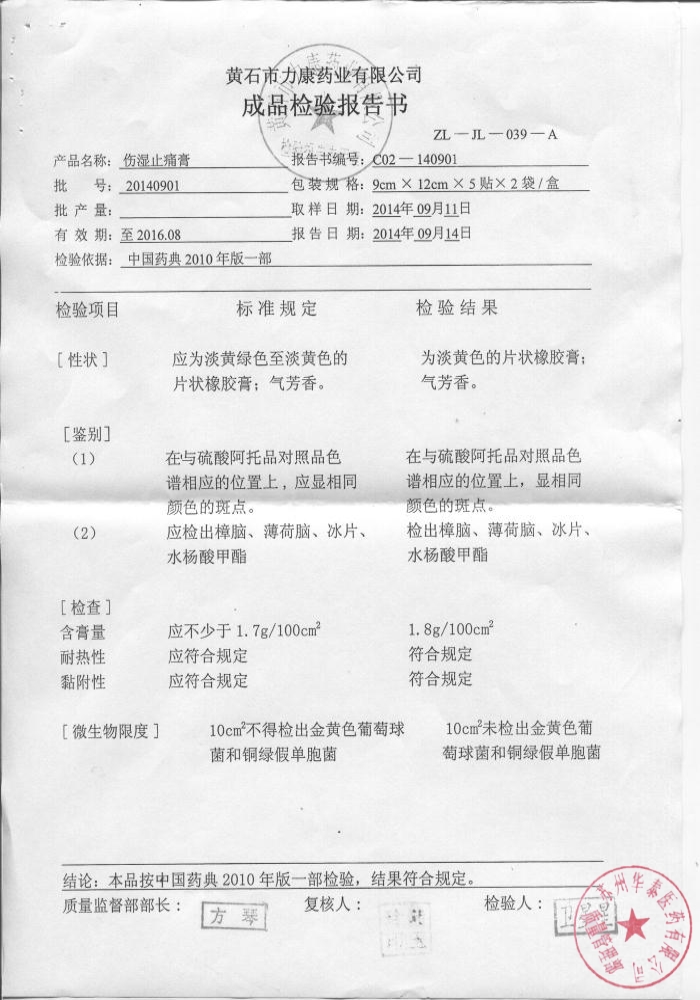 黄石市力康药业有限公司
成品检验报告书
ZL — JL — 039 — A
产品名称：伤湿止痛膏 报告书编号：C02 — 140901
批 号：20140901 包 装 规 格：9cm × 12cm × 5 贴 × 2 袋 / 盒
批 产 量： 取 样 日 期：2014年 09月11日
有 效 期：至 2016.08 报 告 日 期：2014年 09月14日
检验依据：中国药典 2010 年版一部
检验项目 标 准 规 定 检 验 结 果
[ 性状 ] 应为淡黄绿色至淡黄色的 为淡黄色的片状橡胶膏；
片状橡胶膏；气芳香。 气芳香。
[鉴别]
（1） 在与硫酸阿托品对照品色 在与硫酸阿托品对照品色
谱相应的位置上，应显相同 谱相应的位置上，显相同
颜色的斑点。 颜色的斑点。
（2） 应检出樟脑、薄荷脑、冰片、 检出樟脑、薄荷脑、冰片、
水杨酸甲酯 水杨酸甲酯
[ 检查 ]
含膏量 应不少于 1.7g/100cm² 1.8g/100cm²
耐热性 应符合规定 符合规定
黏附性 应符合规定 符合规定
[ 微生物限度 ] 10cm²不得检出金黄色葡萄球 10cm²未检出金黄色葡
菌和铜绿假单胞菌 萄球菌和铜绿假单胞菌
结论：本品按中国药典 2010 年版一部检验，结果符合规定。
质量监督部部长： 方 琴 复核人： 检验人：
州华泰医药有限公司